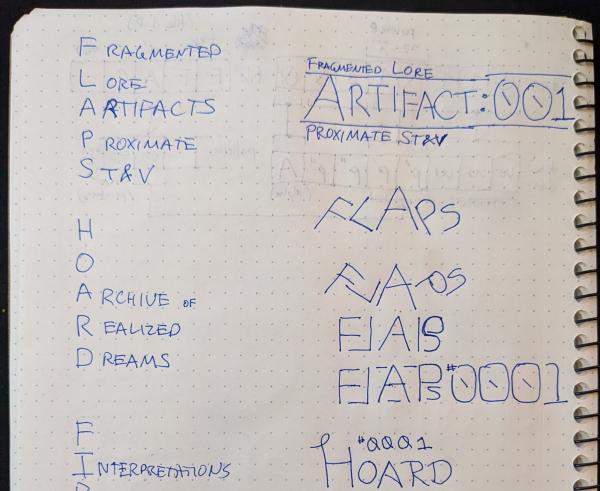 FRAGMENTED
LORE
ARTIFACTS
PROXIMATE
ST&V
H
O
ARCHIVE OF
REALIZED
DREAMS
F
INTERPRETATIONS
FRAGMENTED LORE
ARTIFACT:001
PROXIMATE ST&V
FLAPS
FLAPS
FLAPS
FLAPS#0001
#0001
HOARD